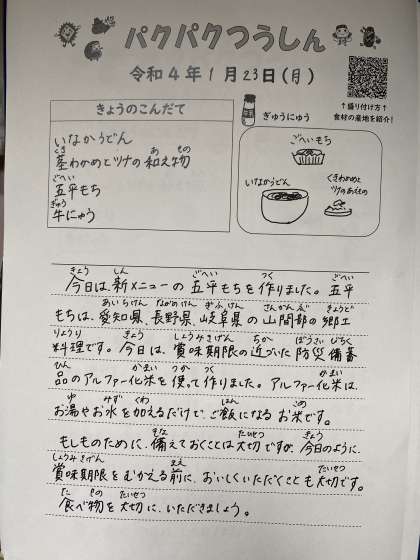 パクパクつうしん
令和4年1月23日(月)
きょうのこんだて
いなかうどん
茎わかめとツナの和え物
五平もち
牛にゅう
ぎゅうにゅう
↑盛り付け方↑
食材の産地を紹介!
ごへいもち
いなかうどん
くきわかめと
ツナのあえもの
今日は、新メニューの五平もちを作りました。五平
もちは、愛知県、長野県、岐阜県の山間部の郷土
料理です。今日は、賞味期限の近づいた防災備蓄
品のアルファー化米を使って作りました。アルファー化米は、
お湯やお水を加えるだけで、ご飯になるお米です。
もしものために、備えておくことは大切ですが、今日のように、
賞味期限をむかえる前に、おいしくいただくことも大切です。
食べ物を大切に、いただきましょう。